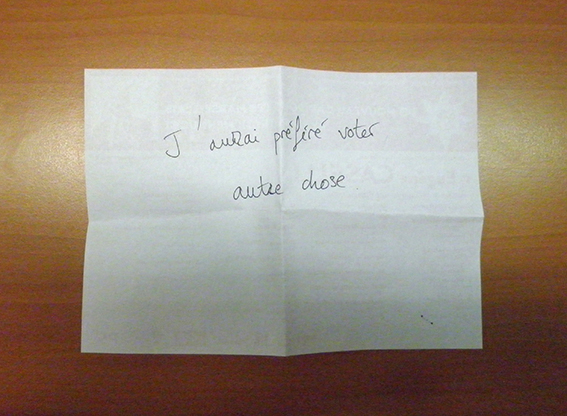 J'aurai préféré voter
autre chose